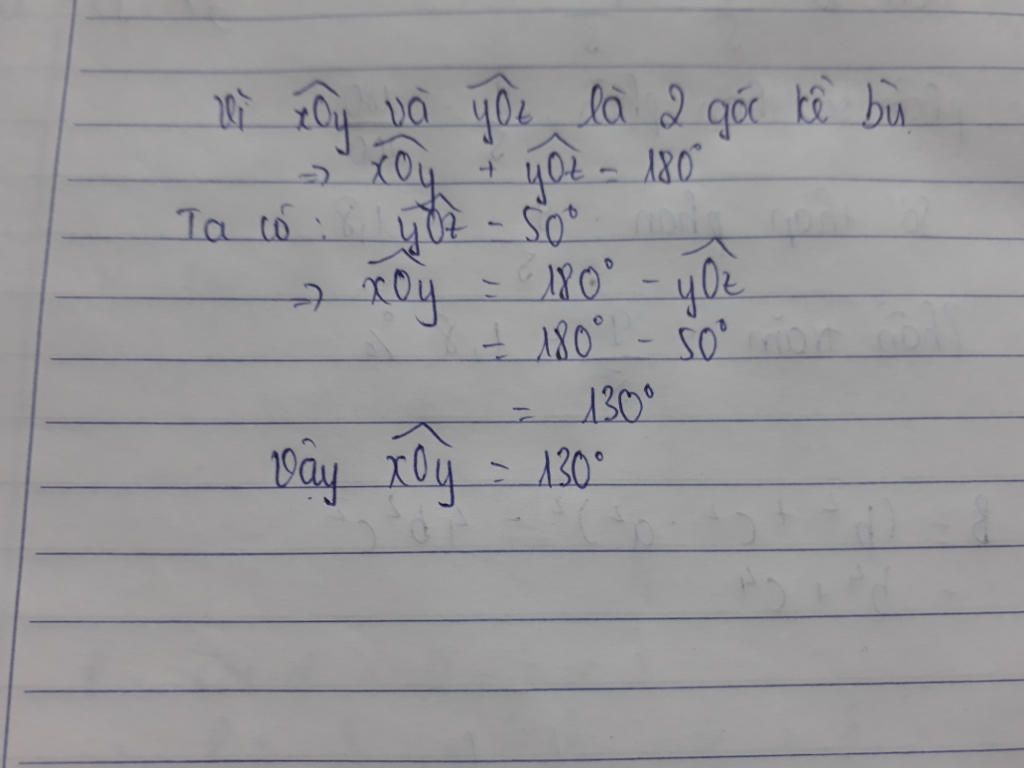 Vì \widehat{xOy} và \widehat{yOz} là 2 góc kề bù
=> \widehat{xOy} + \widehat{yOz} = 180°
Ta có: \widehat{yOz} = 50°
=> \widehat{xOy} = 180° - \widehat{yOz}
= 180° - 50°
= 130°
Vậy \widehat{xOy} = 130°